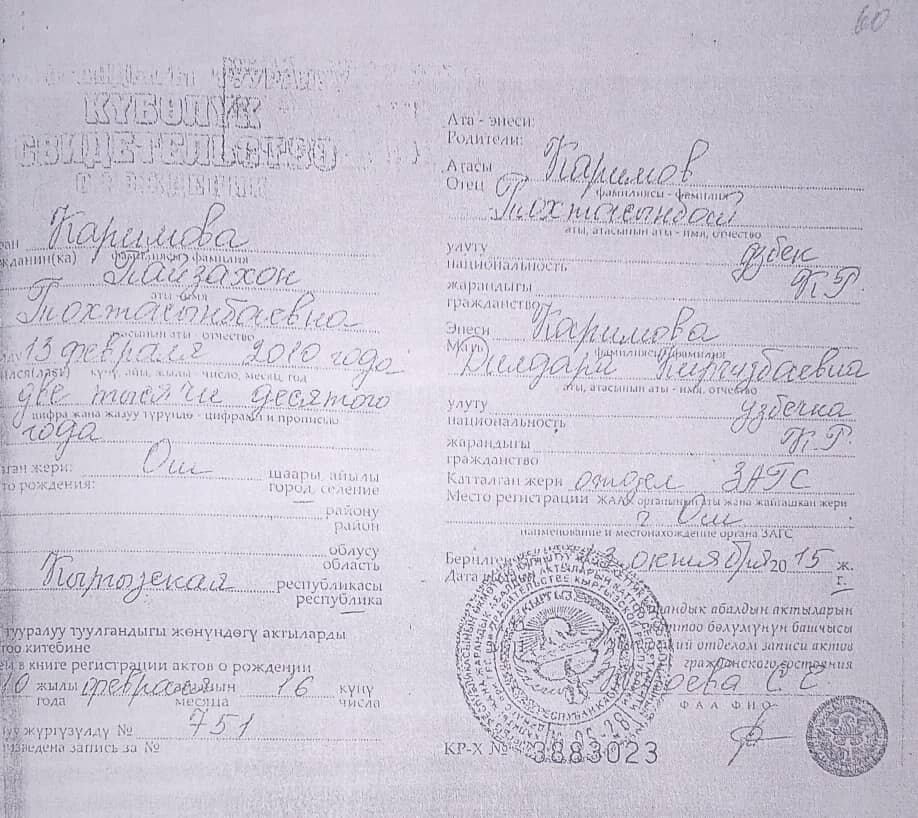 60
КҮБӨЛҮК
СВИДЕТЕЛЬСТВО
О РОЖДЕНИИ
Каримова
фамилиясы фамилия
аты имя
Тохтасынбаевна
атасынын аты отчество
13 февраля 2010 года
күнү, айы, жылы - число, месяц, год
две тысячи десятого
цифра жана жазуу түрүндө - цифрами и прописью
года
жери: Ош шаары, айылы
рождения: город, селение
району
район
облусу
область
Кыргызская республикасы
республика
тууралуу туулгандыгы жөнүндөгү актыларды
китебине
в книге регистрации актов о рождении
10 жылы февраля айынын 16 күнү
года месяца числа
жүргүзүлдү № 751
запись за №
Ата - энеси:
Родители:
Атасы Каримов
Отец фамилиясы - фамилия
Тохтасынбай
аты, атасынын аты - имя, отчество
улуту узбек
национальность
жарандыгы К.Р.
гражданство
Энеси Каримова
Мать фамилиясы фамилия
аты, атасынын аты - имя, отчество
улуту узбечка
национальность
жарандыгы К.Р.
гражданство
Катталган жери отдел ЗАГС
Место регистрации ЖААК органынын аты жана жайгашкан жери
г Ош
наименование и местонахождение органа ЗАГС
Берилген октября 2015 ж.
Дата г.
абалдын актыларын
бөлүмүнүн башчысы
отделом записи актов
гражданского состояния
С.С.
ФАА ФИО
КР-Х № 3883023